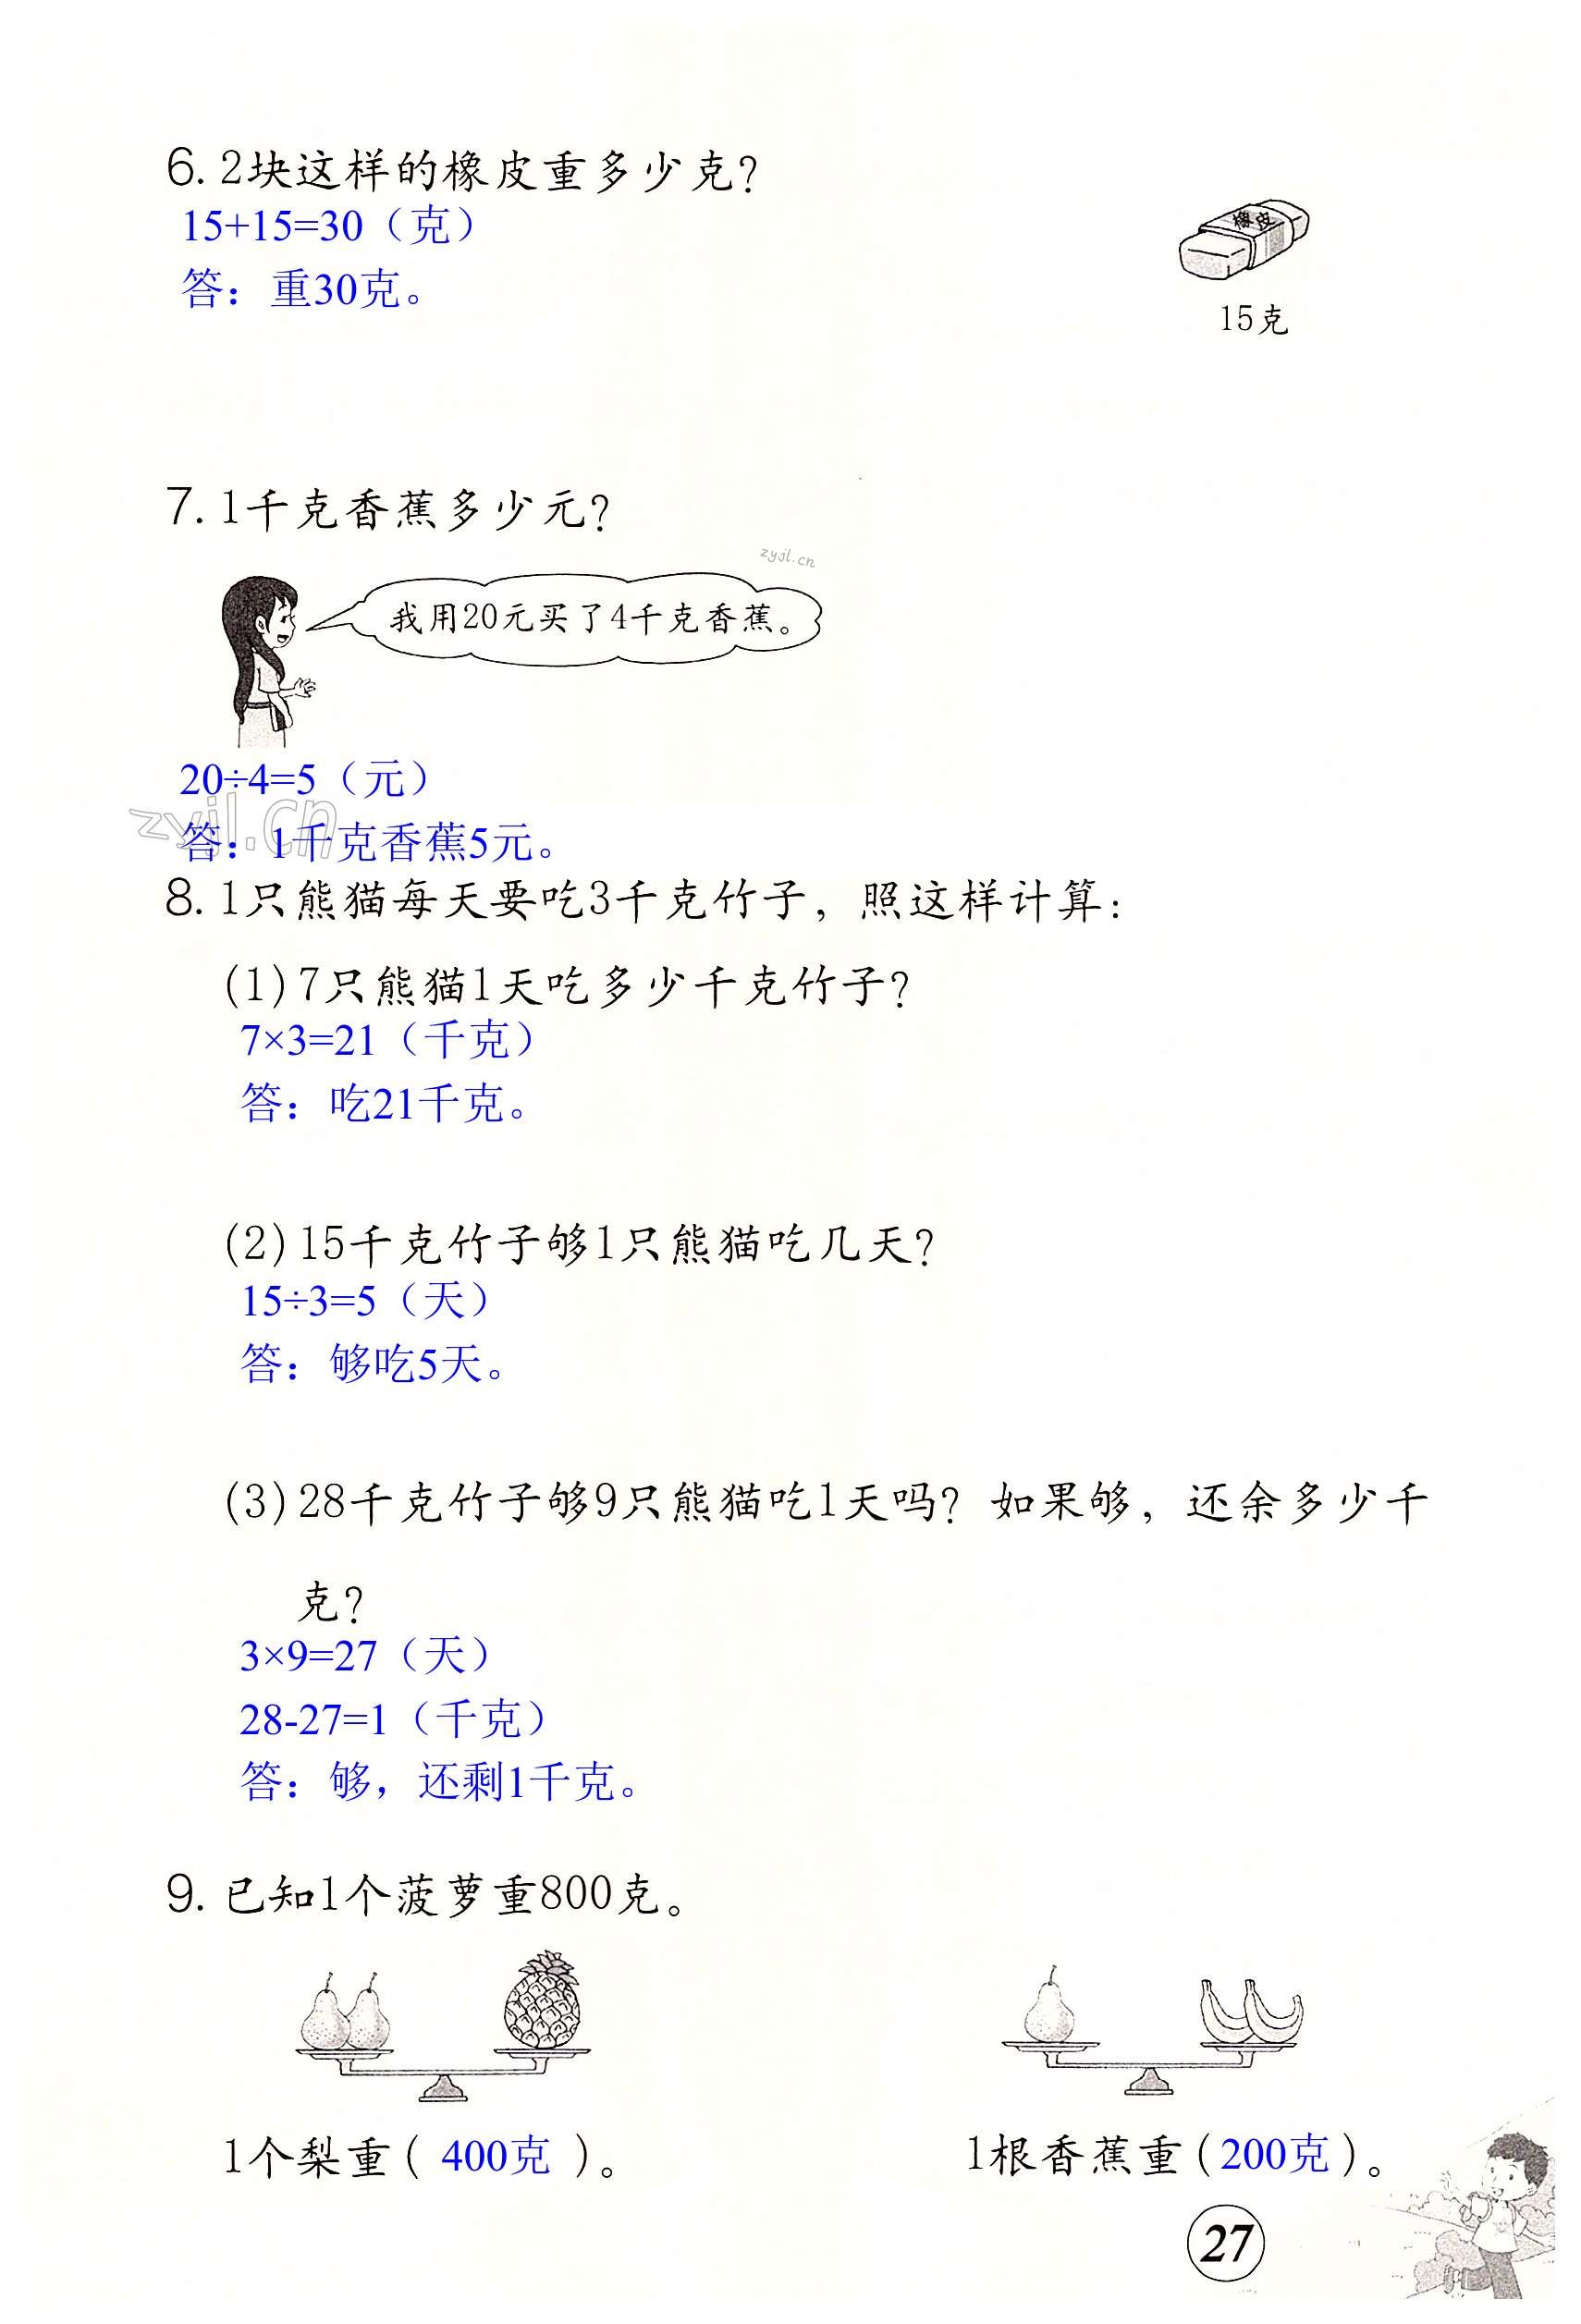 6.2块这样的橡皮重多少克?
15+15=30（克）
答：重30克。
橡皮
15克
7.1千克香蕉多少元?
zyjl.cn
我用20元买了4千克香蕉。
20÷4=5（元）
zyjl.cn
答：1千克香蕉5元。
8.1只熊猫每天要吃3千克竹子，照这样计算：
(1)7只熊猫1天吃多少千克竹子?
7×3=21（千克）
答：吃21千克。
(2)15千克竹子够1只熊猫吃几天?
15÷3=5（天）
答：够吃5天。
(3)28千克竹子够9只熊猫吃1天吗? 如果够，还余多少千
克?
3×9=27（天）
28-27=1（千克）
答：够，还剩1千克。
9.已知1个菠萝重800克。
1个梨重( 400克 )。
1根香蕉重(200克)。
27